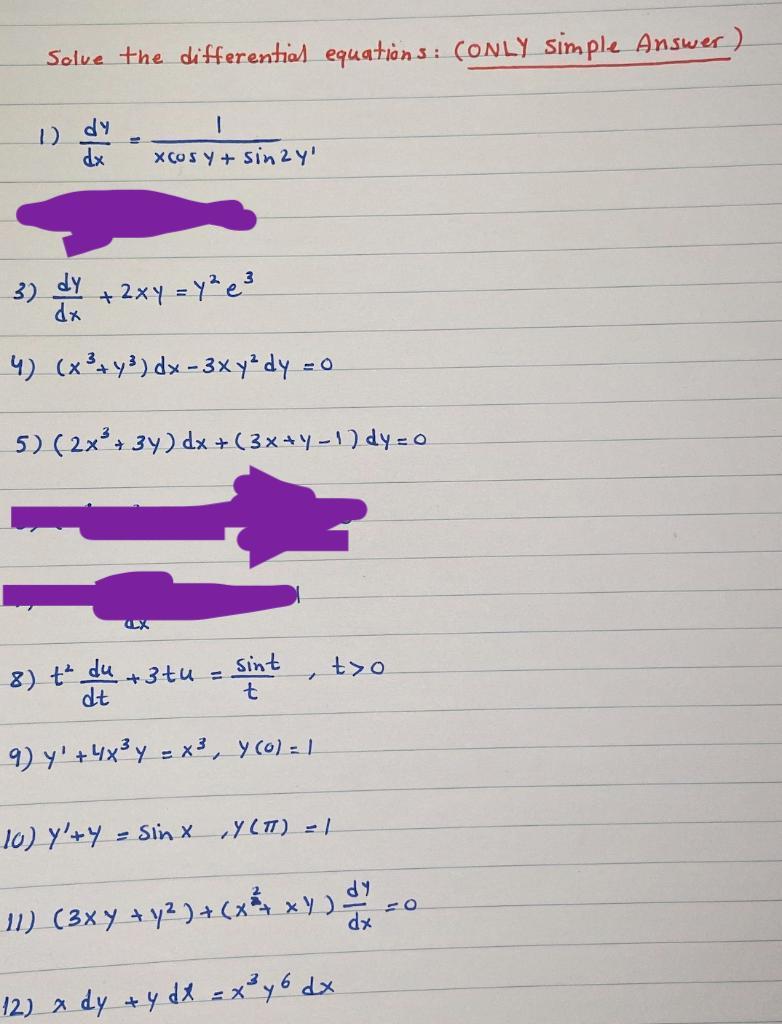 Solve the differential equations: (ONLY simple Answer)
1) dy/dx = 1/(x cos y + sin 2y'
3) dy/dx + 2xy = y² e³
4) (x³ + y³) dx - 3xy² dy = 0
5) (2x³ + 3y) dx + (3x + y - 1) dy = 0
dx
8) t² du/dt + 3tu = sin t/t , t > 0
9) y' + 4x³y = x³, y(0) = 1
10) y' + y = sin x , y(π) = 1
11) (3xy + y²) + (x² + xy) dy/dx = 0
12) x dy + y dx = x³y⁶ dx